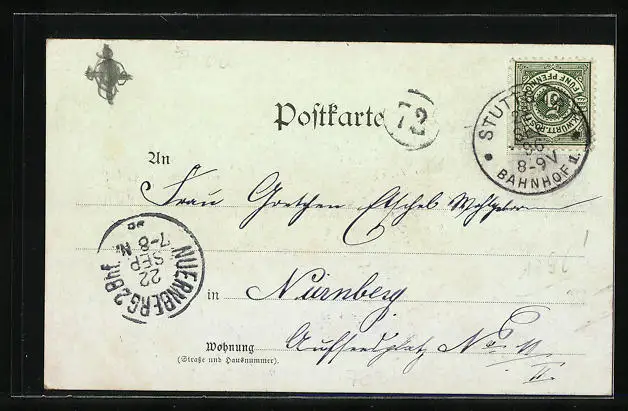 Postkarte
72
STUTTGART
96
8-9V
BAHNHOF II.
K. WÜRTT. POST
FÜNF PFENNIG
5
An
Frau Gretchen Etschel Wohlgeboren
NUERNBERG 2 Bhf.
22
SEP
7-8 N.
in Nürnberg
Wohnung
(Straße und Hausnummer).
Aufseßplatz No 11
II.